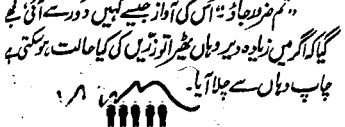 ”تم ضرور جاؤ۔“ اس کی آواز جیسے کہیں دور سے آئی مجھے
گیا کہ اگر میں زیادہ دیر وہاں ٹھہرا تو زرّیں کی کیا حالت ہو سکتی ہے
چاپ وہاں سے چلا آیا۔